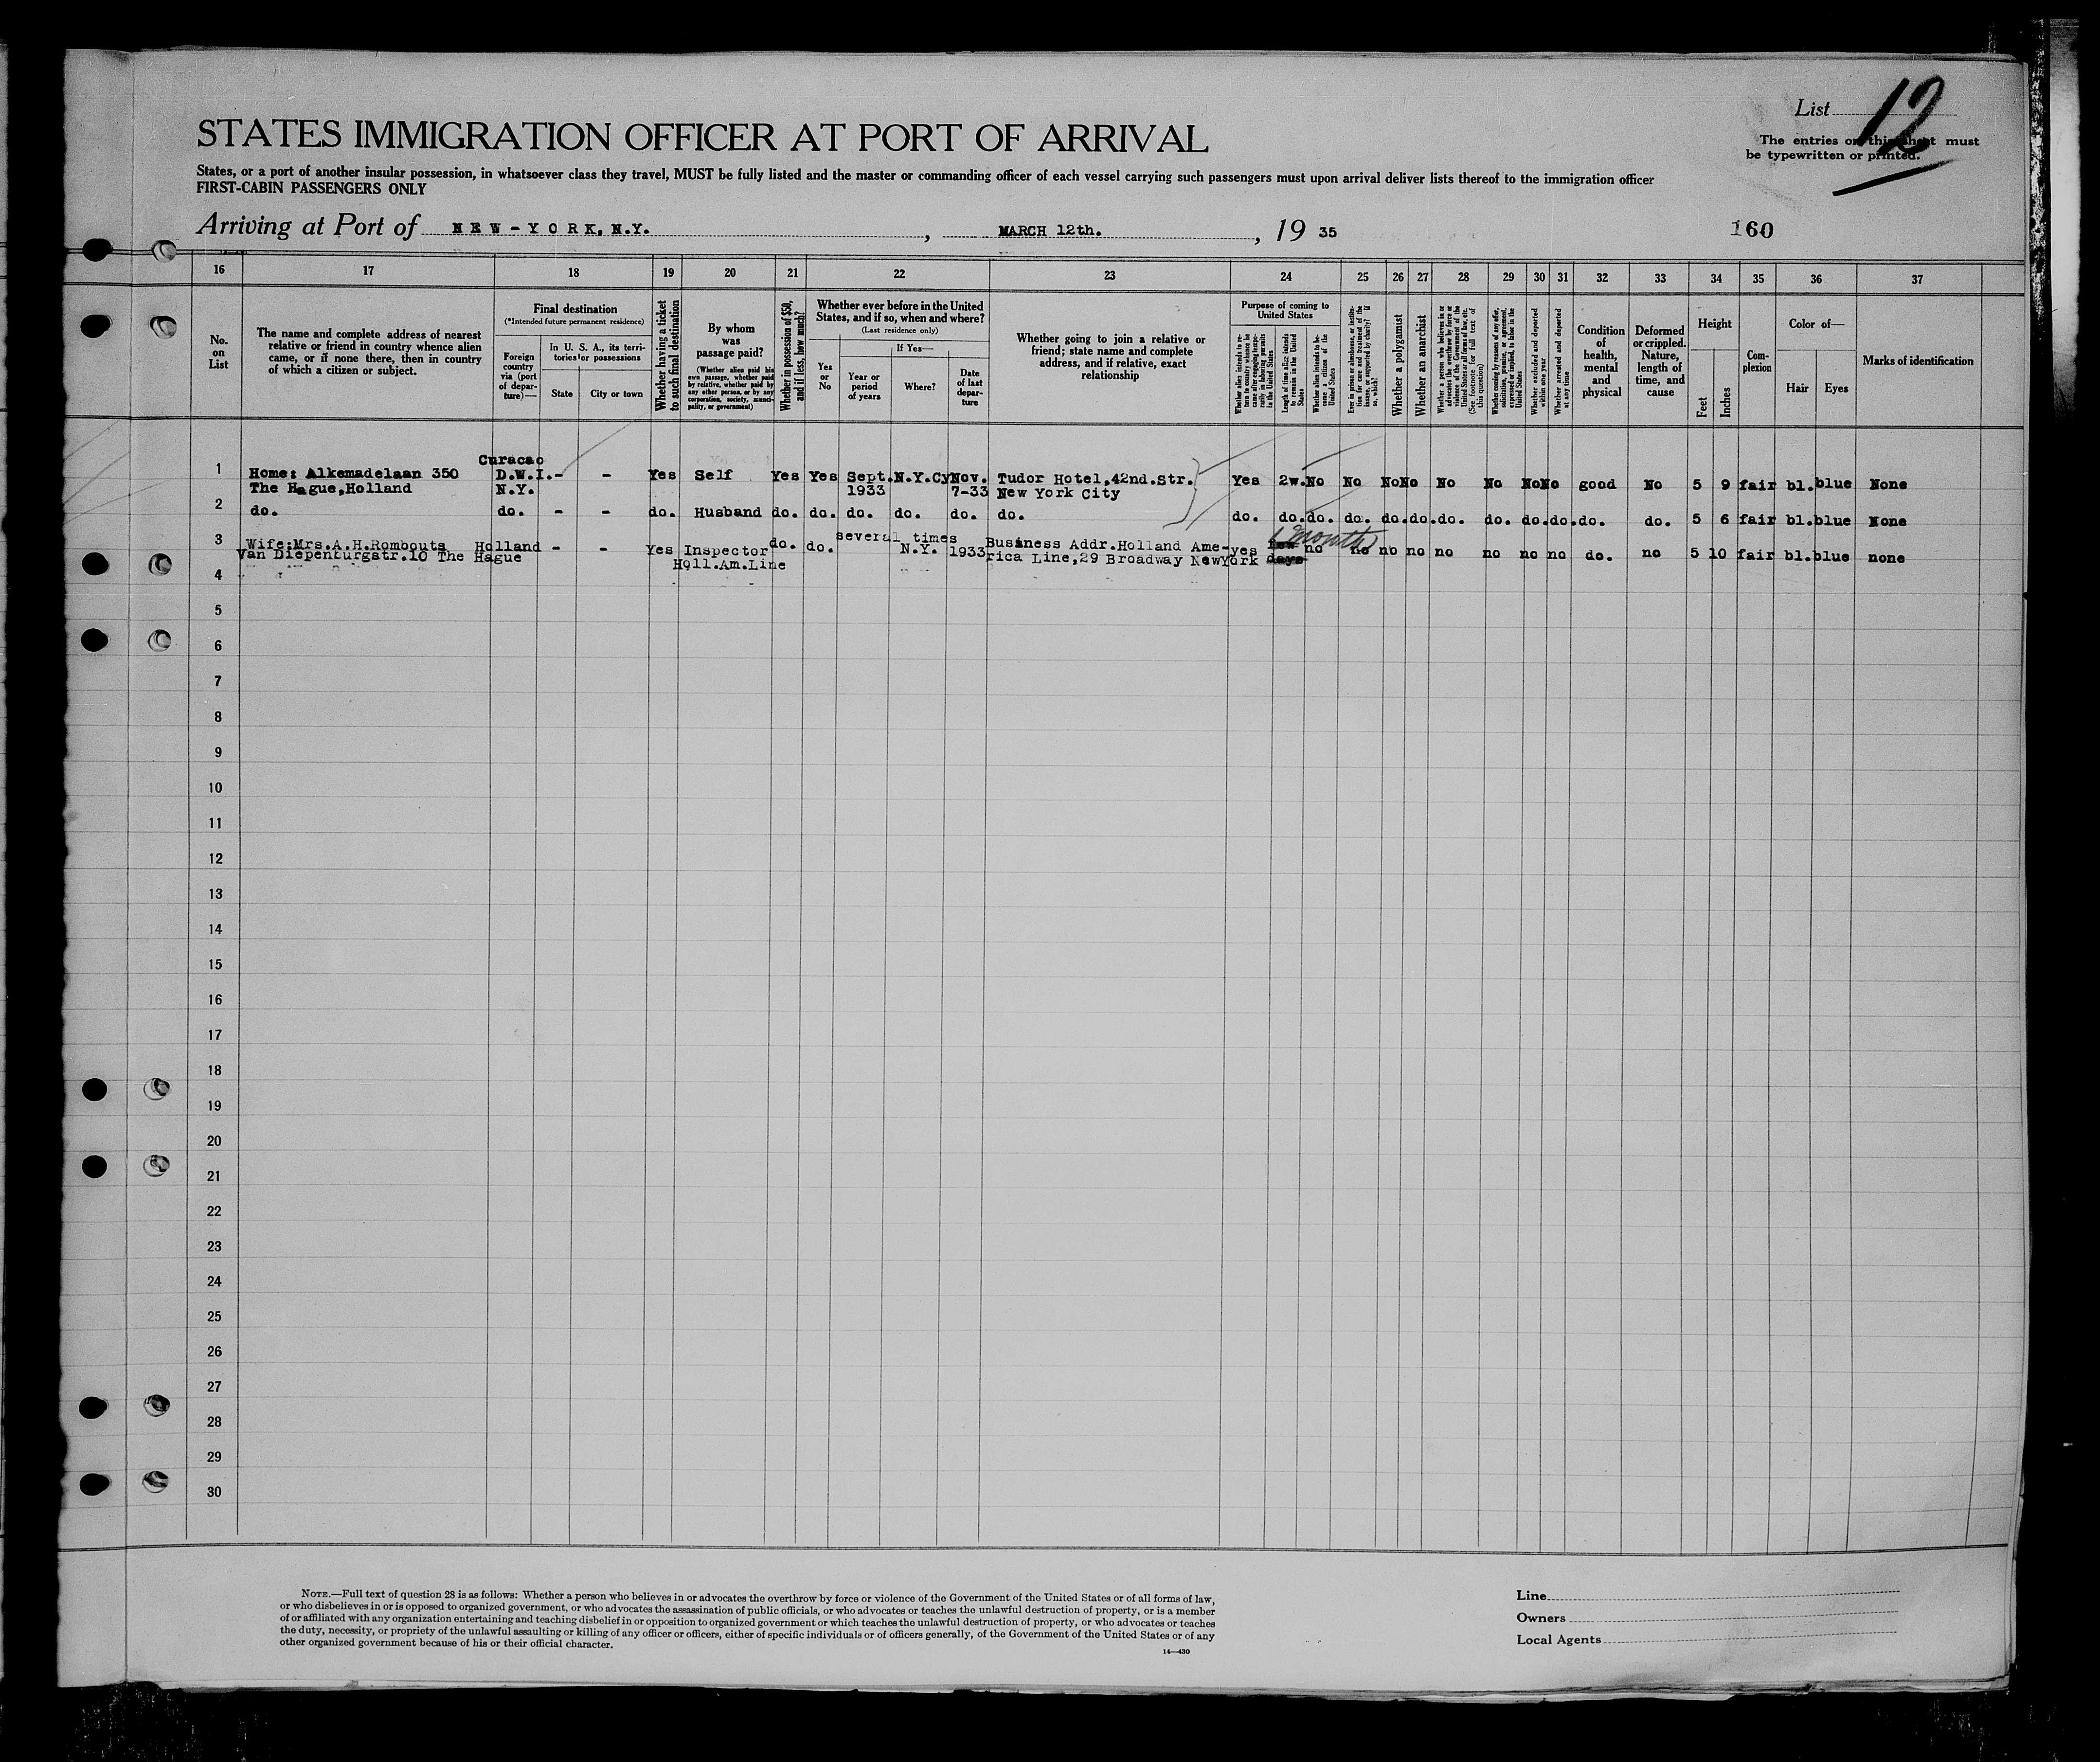 List 12
STATES IMMIGRATION OFFICER AT PORT OF ARRIVAL
The entries on this sheet must
be typewritten or printed.
States, or a port of another insular possession, in whatsoever class they travel, MUST be fully listed and the master or commanding officer of each vessel carrying such passengers must upon arrival deliver lists thereof to the immigration officer
FIRST-CABIN PASSENGERS ONLY
Arriving at Port of NEW-YORK, N.Y., MARCH 12th., 19 35
160
16 17 18 19 20 21 22 23 24 25 26 27 28 29 30 31 32 33 34 35 36 37
No. on List
The name and complete address of nearest
relative or friend in country whence alien
came, or if none there, then in country
of which a citizen or subject.
Final destination
(*Intended future permanent residence)
Foreign country via (port of departure)—
In U. S. A., its territories or possessions
State
City or town
Whether having a ticket to such final destination
By whom was passage paid?
(Whether alien paid his own passage, whether paid by relative, whether paid by any other person, or by any corporation, society, municipality, or government)
Whether in possession of $50, and if less, how much?
Whether ever before in the United States, and if so, when and where?
(Last residence only)
Yes or No
If Yes—
Year or period of years
Where?
Date of last departure
Whether going to join a relative or
friend; state name and complete
address, and if relative, exact
relationship
Purpose of coming to United States
Whether alien intends to return to country whence he came after engaging temporarily in laboring pursuits in the United States
Length of time alien intends to remain in the United States
Whether alien intends to become a citizen of the United States
Ever in prison or almshouse, or institution for care and treatment of the insane, or supported by charity? If so, which?
Whether a polygamist
Whether an anarchist
Whether a person who believes in or advocates the overthrow by force or violence of the Government of the United States or all forms of law, etc. (See footnote for full text of this question)
Whether coming by reasons of any offer, solicitation, promise, or agreement, expressed or implied, to labor in the United States
Whether excluded and deported within one year
Whether arrested and deported at any time
Condition of health, mental and physical
Deformed or crippled. Nature, length of time, and cause
Height
Feet
Inches
Complexion
Color of—
Hair
Eyes
Marks of identification
Curacao
1 Home: Alkemadelaan 350 D.W.I. - - Yes Self Yes Yes Sept. N.Y.Cy Nov. Tudor Hotel,42nd.Str. Yes 2w. No No No No No No No No good No 5 9 fair bl. blue None
The Hague,Holland N.Y. 1933 7-33 New York City
2 do. do. - - do. Husband do. do. do. do. do. do. do. do. do. do. do. do. do. do. do. do. do. do. 5 6 fair bl. blue None
several times (2 months)
3 Wife:Mrs.A.H.Rombouts Holland - - Yes Inspector do. do. N.Y. 1933 Business Addr.Holland Ame- yes few no no no no no no no no do. no 5 10 fair bl. blue none
Van Diepenburgstr.10 The Hague Holl.Am.Line rica Line,29 Broadway NewYork days
4
5
6
7
8
9
10
11
12
13
14
15
16
17
18
19
20
21
22
23
24
25
26
27
28
29
30
NOTE.—Full text of question 28 is as follows: Whether a person who believes in or advocates the overthrow by force or violence of the Government of the United States or of all forms of law,
or who disbelieves in or is opposed to organized government, or who advocates the assassination of public officials, or who advocates or teaches the unlawful destruction of property, or is a member
of or affiliated with any organization entertaining and teaching disbelief in or opposition to organized government or which teaches the unlawful destruction of property, or who advocates or teaches
the duty, necessity, or propriety of the unlawful assaulting or killing of any officer or officers, either of specific individuals or of officers generally, of the Government of the United States or of any
other organized government because of his or their official character.
14—430
Line
Owners
Local Agents